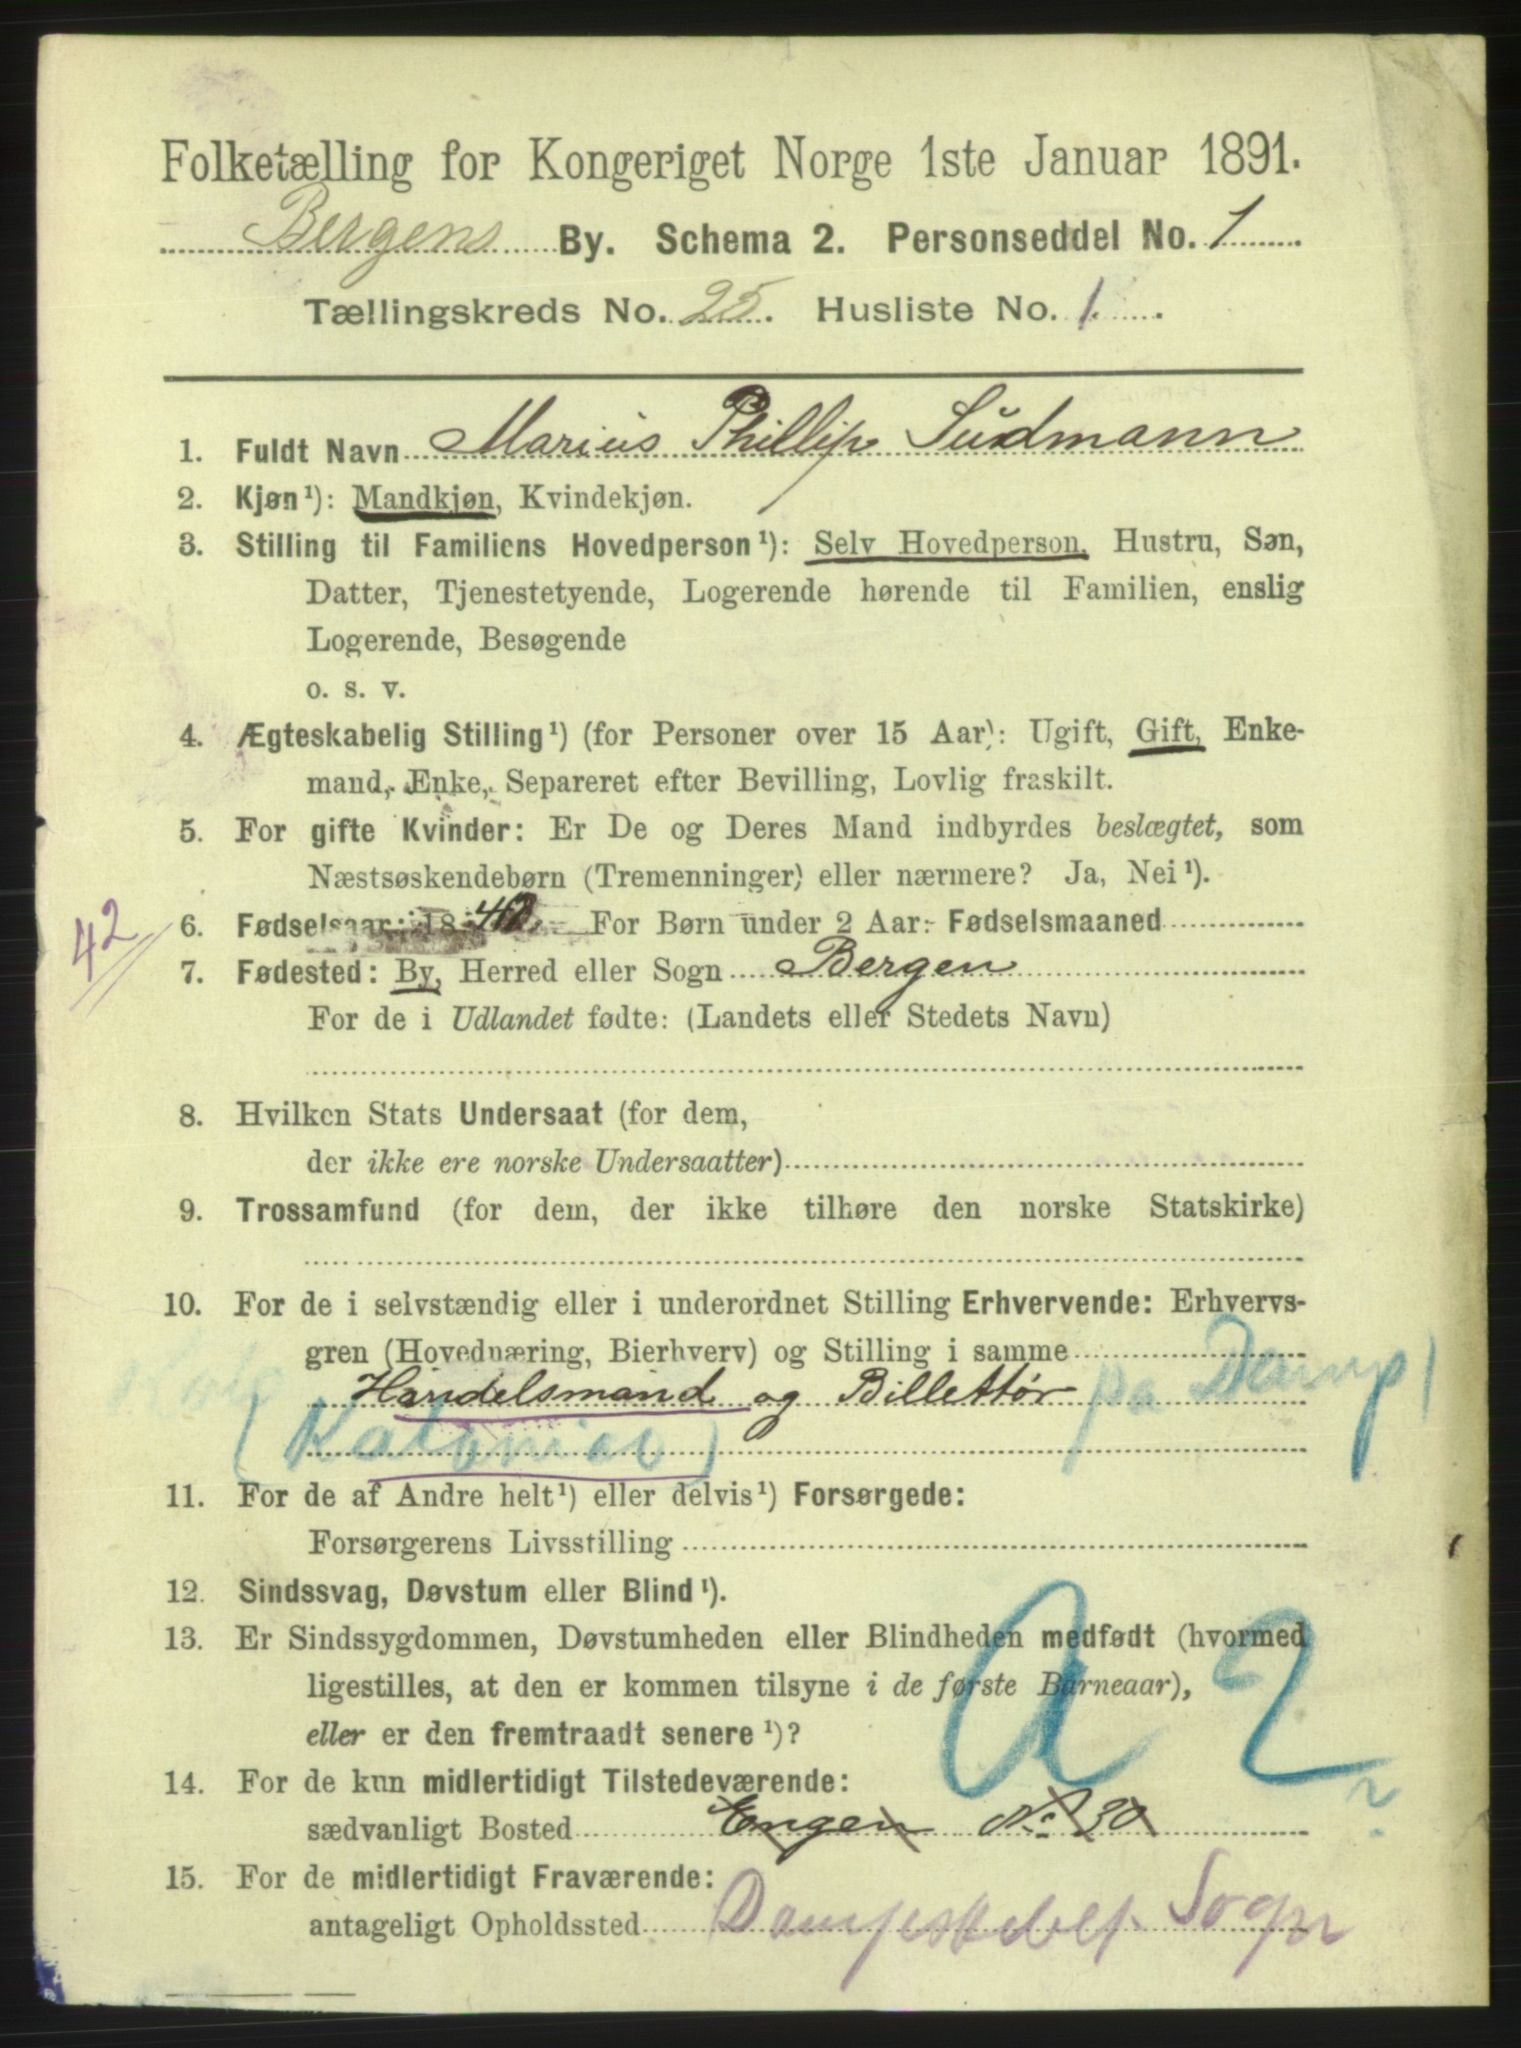 Folketælling for Kongeriget Norge 1ste Januar 1891.
Bergens By. Schema 2. Personseddel No. 1
Tællingskreds No. 25. Husliste No. 1.
1. Fuldt Navn Marius Phillip Südmann
2. Kjøn¹): Mandkjøn, Kvindekjøn.
3. Stilling til Familiens Hovedperson¹): Selv Hovedperson, Hustru, Søn,
Datter, Tjenestetyende, Logerende hørende til Familien, enslig
Logerende, Besøgende
o. s. v.
4. Ægteskabelig Stilling¹) (for Personer over 15 Aar): Ugift, Gift, Enke-
mand, Enke, Separeret efter Bevilling, Lovlig fraskilt.
5. For gifte Kvinder: Er De og Deres Mand indbyrdes beslægtet, som
Næstsøskendebørn (Tremenninger) eller nærmere? Ja, Nei¹).
42
6. Fødselsaar: 18 For Børn under 2 Aar: Fødselsmaaned
7. Fødested: By, Herred eller Sogn Bergen
For de i Udlandet fødte: (Landets eller Stedets Navn)
8. Hvilken Stats Undersaat (for dem,
der ikke ere norske Undersaatter)
9. Trossamfund (for dem, der ikke tilhøre den norske Statskirke)
10. For de i selvstændig eller i underordnet Stilling Erhvervende: Erhvervs-
gren (Hovednæring, Bierhverv) og Stilling i samme
Handelsmand og Billettør paa Damp
(Kolonial)
11. For de af Andre helt¹) eller delvis¹) Forsørgede:
Forsørgerens Livsstilling
12. Sindssvag, Døvstum eller Blind¹).
13. Er Sindssygdommen, Døvstumheden eller Blindheden medfødt (hvormed
ligestilles, at den er kommen tilsyne i de første Barneaar),
eller er den fremtraadt senere¹)?
a 2
14. For de kun midlertidigt Tilstedeværende:
sædvanligt Bosted Engen No 30
15. For de midlertidigt Fraværende:
antageligt Opholdssted Dampskibet Sogn